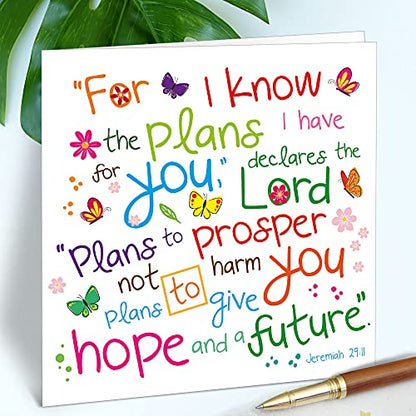 "For I know
the plans I have
for you," declares the
Lord
"Plans to prosper
not to harm you
plans to give
hope and a future".
Jeremiah 29:11